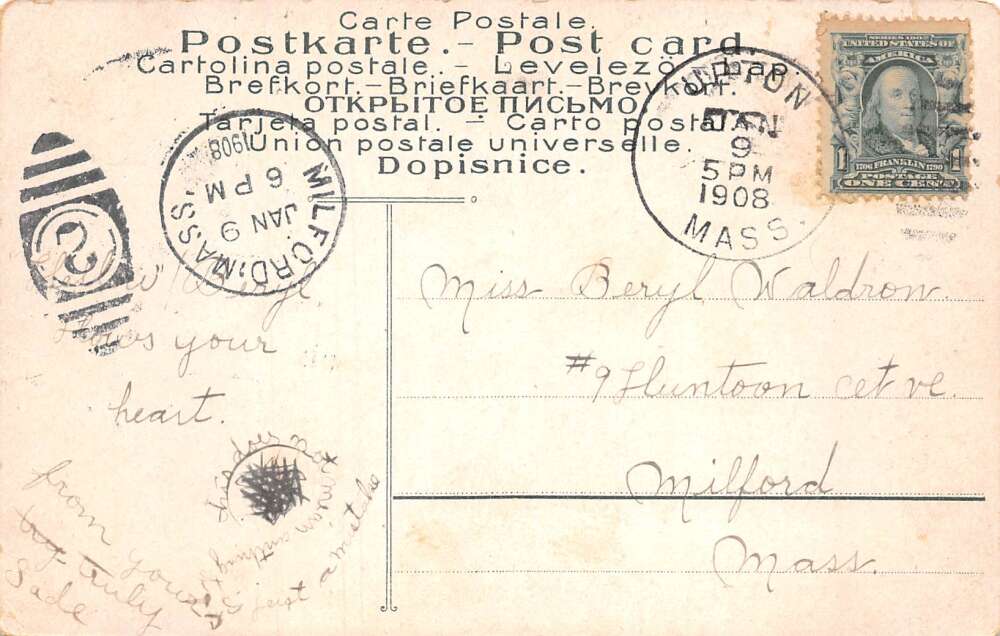 Carte Postale.
Postkarte.- Post card.
Cartolina postale. - Levelezö-
Brefkort.-Briefkaart.-Brevkort.
ОТКРЫТОЕ ПИСЬМО.
Tarjeta postal. - Carto postal.
Union postale universelle.
Dopisnice.
UPTON
JAN
9
5 PM
1908
MASS.
SERIES 1902
UNITED STATES OF
AMERICA
1706 FRANKLIN 1790
POSTAGE
1 ONE CENT 1
MILFORD, MASS.
JAN 9
6 PM
1908
2
Beryl.
Hows your
heart.
from yours
truly
Sade
this does not mean anything
just a mistake
Miss Beryl Waldron.
#9 Huntoon
Milford
Mass.